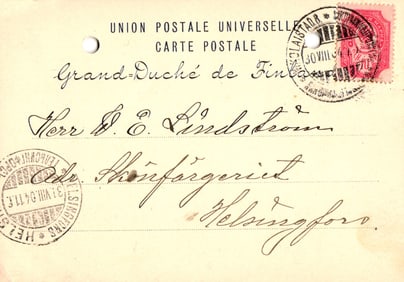 UNION POSTALE UNIVERSELLE
CARTE POSTALE
Grand-Duché de Finlande
NIKOLAISTADT
30 VIII
Herr E. Lindström
Adr. Skönfärgeriet
Helsingfors
HELSINGFORS
31.VIII.04.11